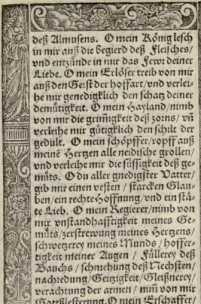 deß Almusens. O mein König lesch
in mir auß die Begierd deß Fleisches/
vnd entzünde in mir das Fewr deiner
Liebe. O mein Erlöser treib von mir
auß den Geist der hoffart/ vnd verley-
he mir genediglich den schatz deiner
demütigkeit. O mein Hayland/ nimb
von mir die grimmigkeit deß zorns/ vñ
verleihe mir gütiglich den schilt der
gedult. O mein schöpffer/ ropff auß
meinẽ Hertzen alle neidische grollen/
vnd verleihe mir die süssigkeit deß ge-
müts. O du aller gnedigster Vatter/
gib mir einen vesten / starcken Glau-
ben/ ein rechte Hoffnung/ vnd ein stä-
te Lieb. O mein Regierer/ nimb von
mir vnstandhafftigkeit meines Ge-
müts/ zerstrewung meines Hertzens/
schwetzerey meines Munds/ hoffer-
tigkeit meiner Augen / Füllerey deß
Bauchs / schmehung deß Nechsten/
nachredung/ Geitzigkeit/ Gleißnerey/
verachtung der armen / nim von mir
Gottßlesterung. O mein Erschaffer/